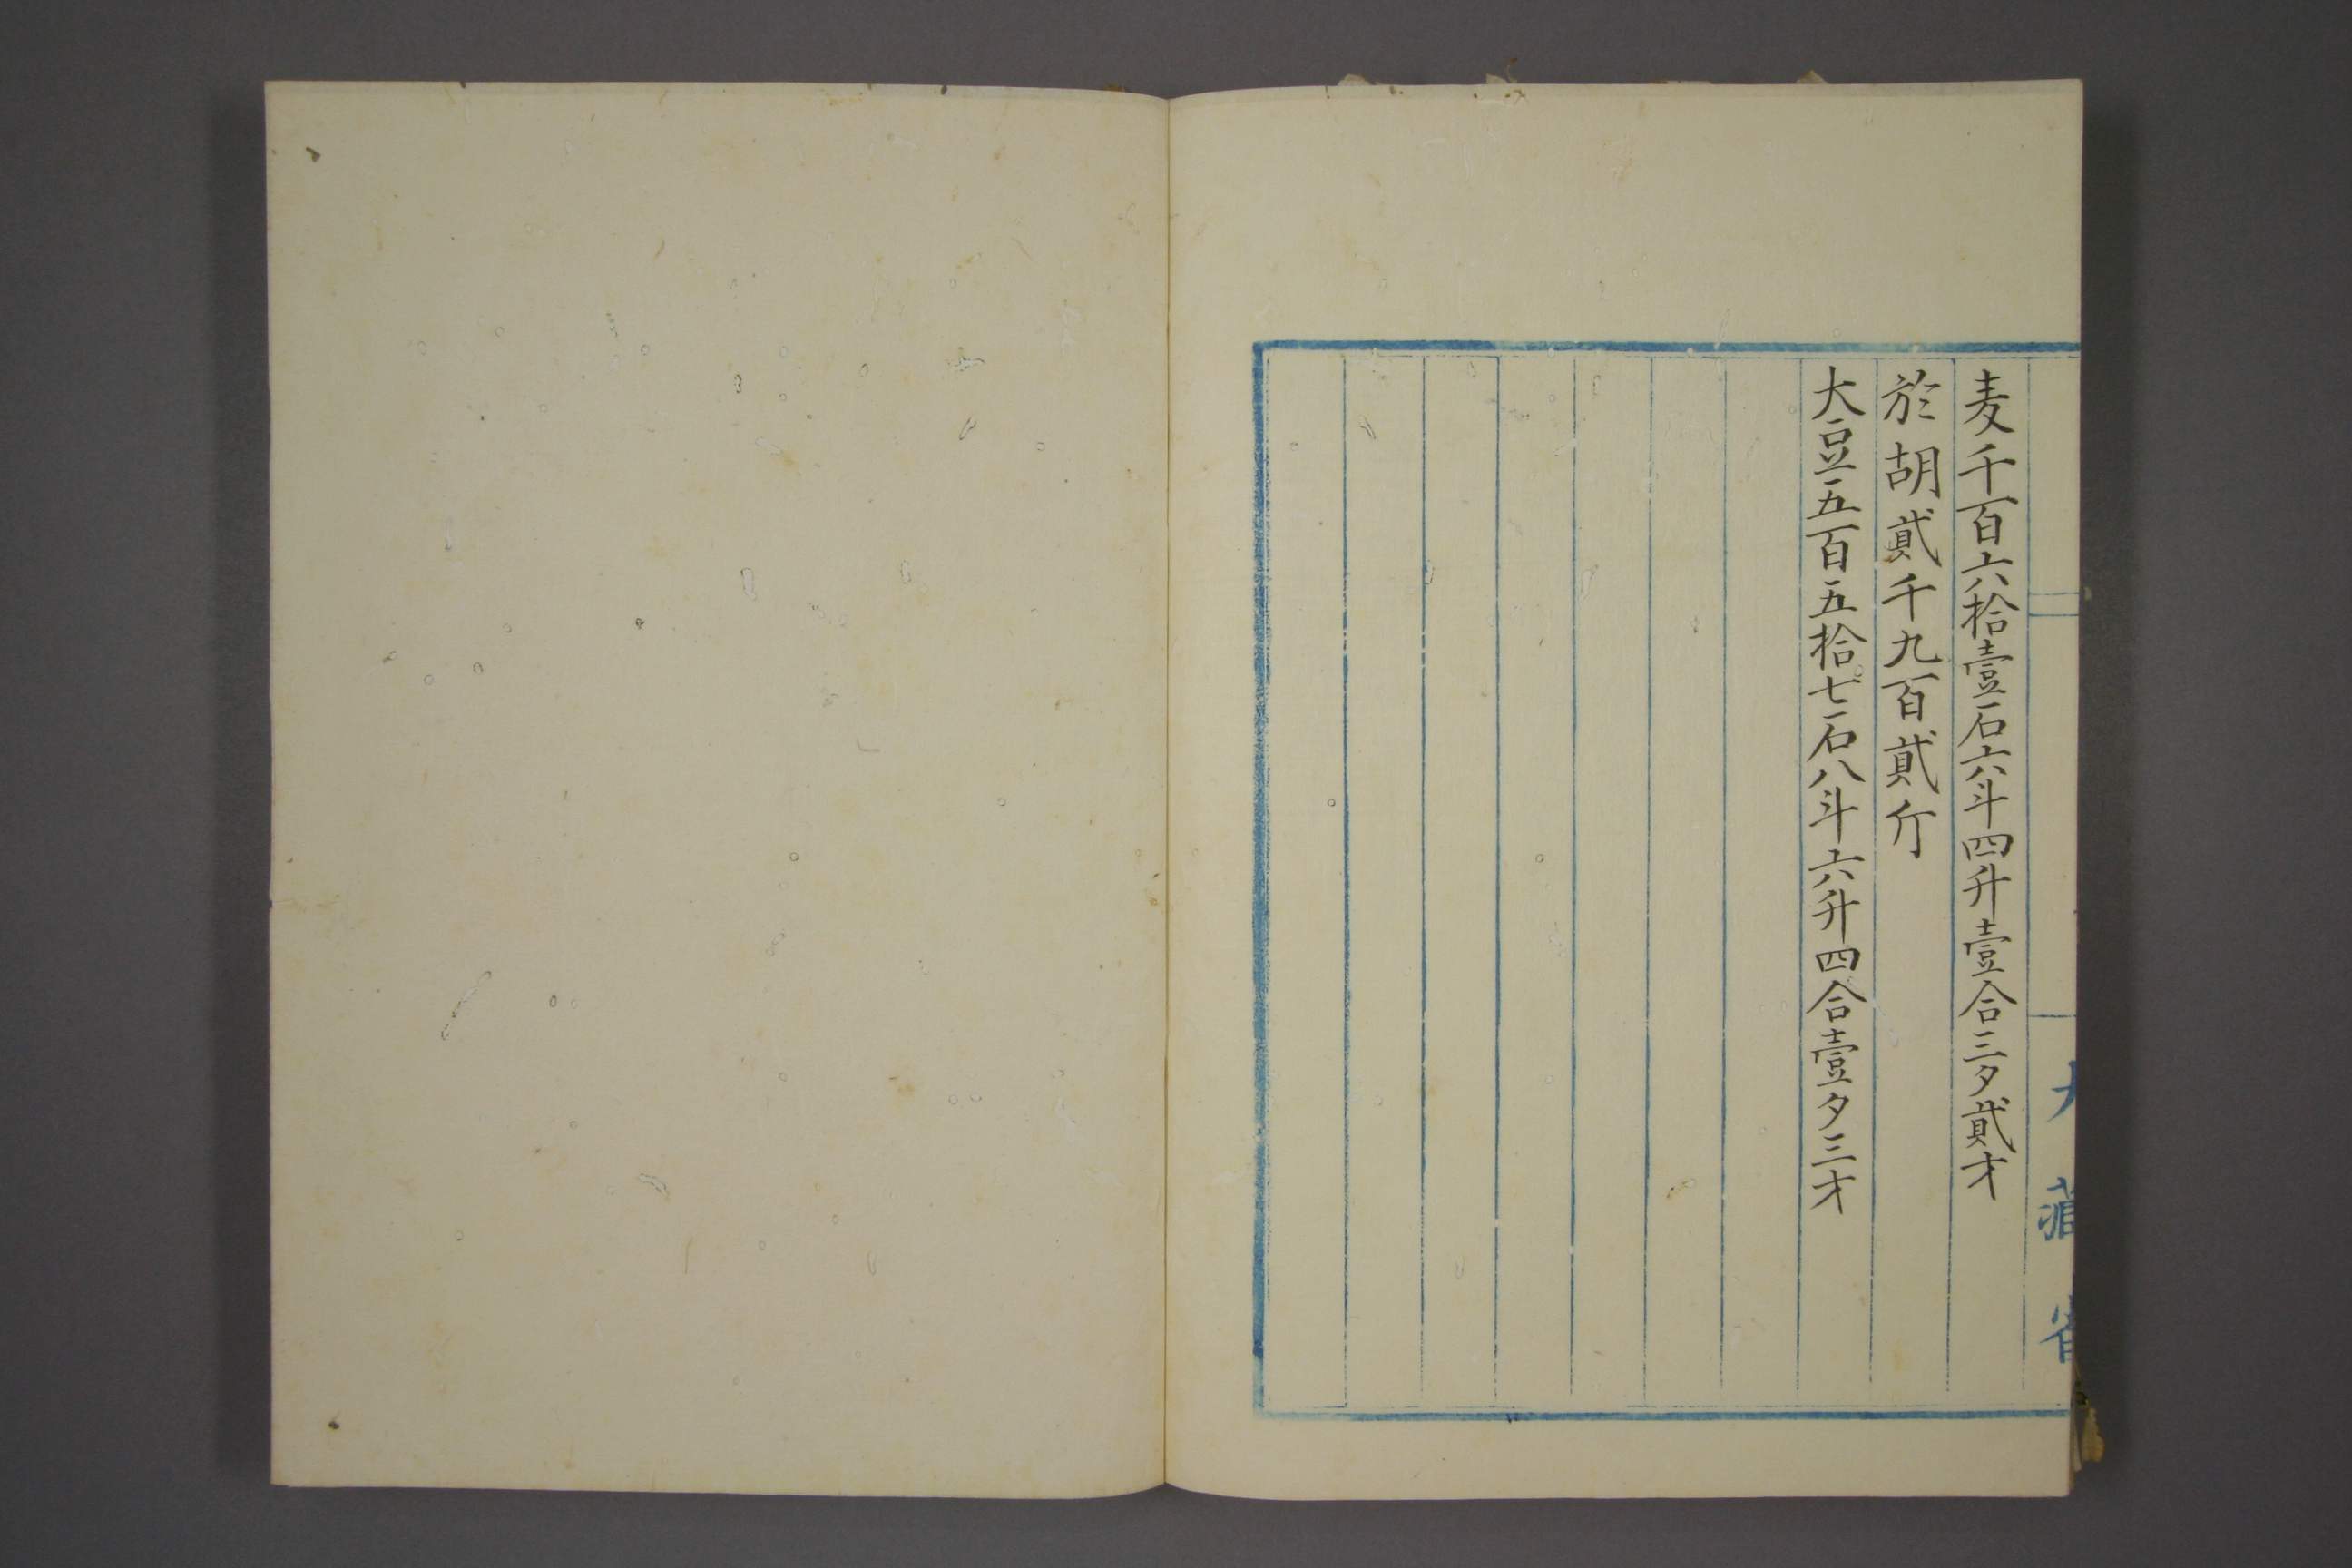 麦千百六拾壹石六斗四升壹合三夕貳才
於胡貳千九百貳斤
大豆五百五拾七石八斗六升四合壹夕三才
大藏省